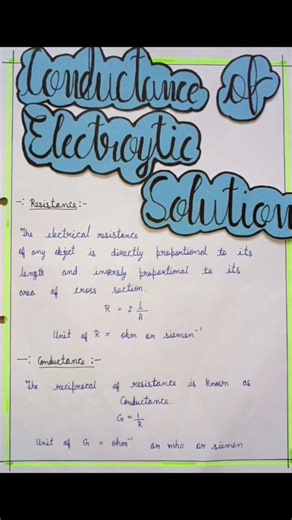 Conductance of
Electroytic
Solution
-: Resistance:-
The electrical resistance
of any object is directly proportional to its
length and inversly proportional to its
area of cross section.
R = 2 l/A
Unit of R = ohm or siemen⁻¹
-: Conductance :-
The reciprocal of resistance is known as
Conductance.
G = 1/R
Unit of G = ohm⁻¹ or mho or siemen